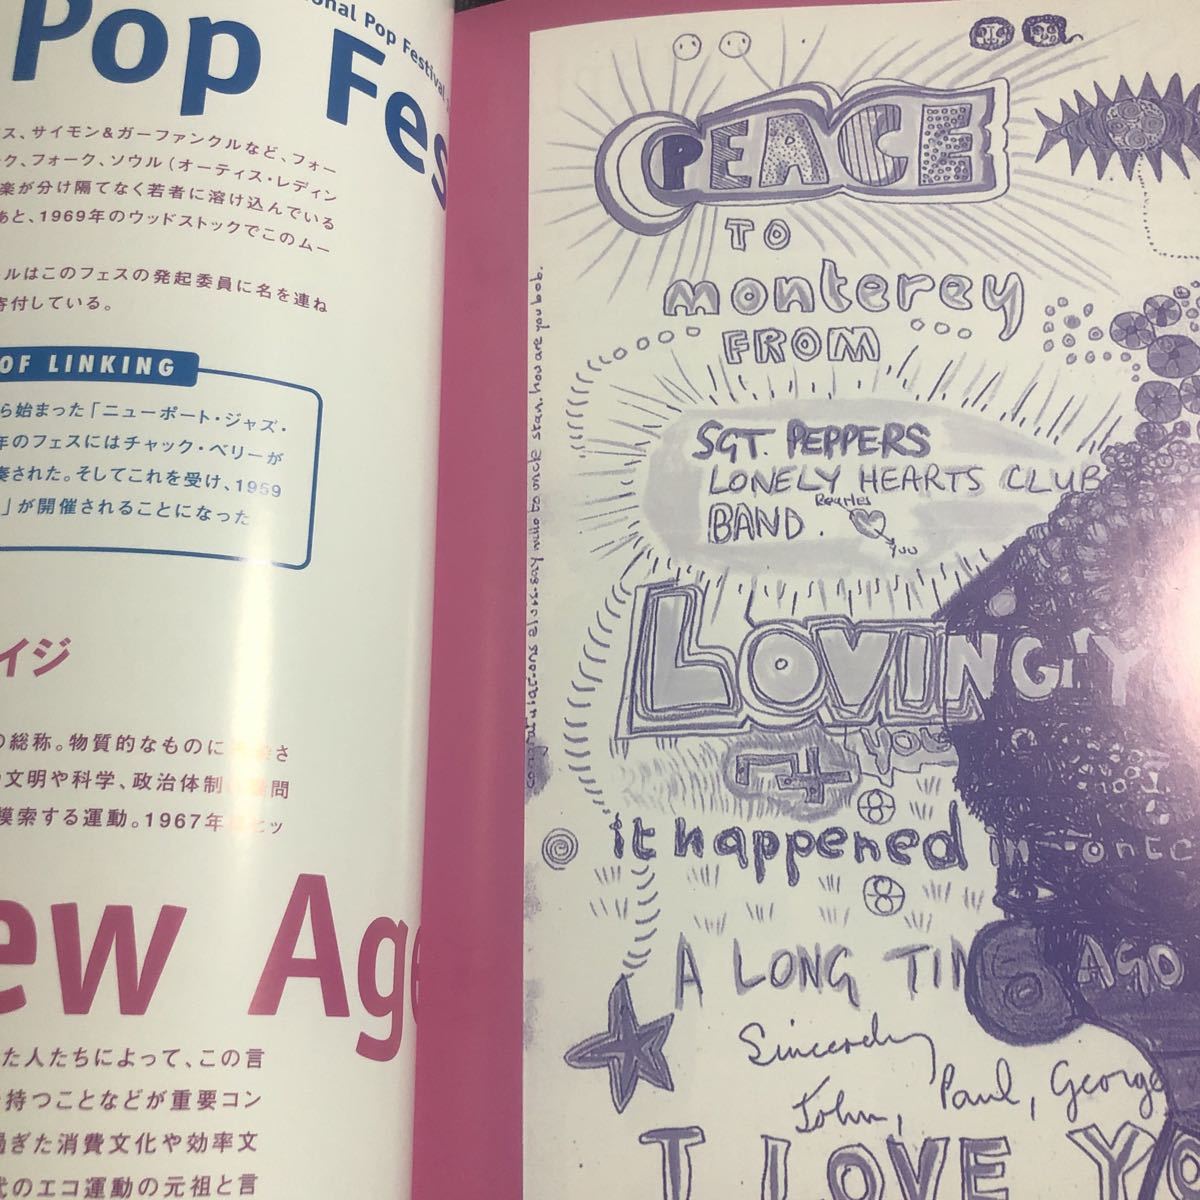 ional Pop Festival
Pop Fes
ス、サイモン&ガーファンクルなど、フォー
ク、フォーク、ソウル(オーティス・レディン
楽が分け隔てなく若者に溶け込んでいる
あと、1969年のウッドストックでこのムー
ルはこのフェスの発起委員に名を連ね
寄付している。
OF LINKING
ら始まった「ニューポート・ジャズ・
年のフェスにはチャック・ベリーが
奏された。そしてこれを受け、1959
」が開催されることになった
イジ
の総称。物質的なものに
文明や科学、政治体制
模索する運動。1967年
ew Age
た人たちによって、この言
持つことなどが重要コン
過ぎた消費文化や効率文
代のエコ運動の元祖と言
PEACE
TO
monterey
FROM
SGT. PEPPERS
LONELY HEARTS CLUB
BAND.
Beatles
you
LOVING YO
you
it happened in
A LONG TIME AGO
Sincerely
John, Paul, George
I LOVE YO
congratulations also say hullo to uncle stan. how are you bob.